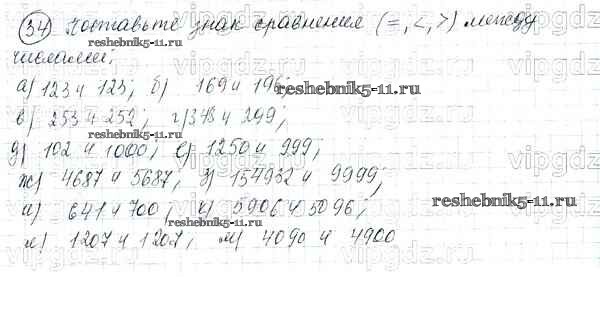 34) Поставьте знак сравнения (=, <, >) между
reshebnik5-11.ru
числами:
а) 123 и 123; б) 169 и 196;
reshebnik5-11.ru
в) 253 и 252; г) 348 и 299;
reshebnik5-11.ru
д) 102 и 1000; е) 1250 и 999;
ж) 4687 и 5687; з) 154932 и 9999;
reshebnik5-11.ru
и) 641 и 700; к) 5906 и 5096;
reshebnik5-11.ru
л) 1207 и 1207; м) 4090 и 4900
vipgdz.ru